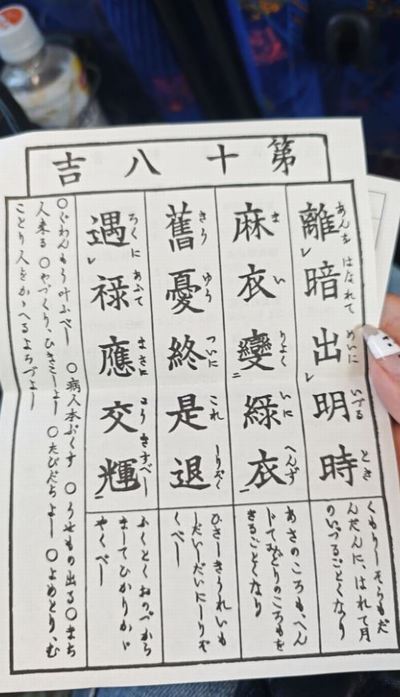 第十八吉
離暗出明時
あんを はなれて めいに いづる とき
くもりしそらもだ
んだんに、はれて月
のいづるごとくなり
麻衣變緑衣
ま い りよく いに へんず
あさのころも、へん
じてみどりのころもを
きるごとくなり
舊憂終是退
きう ゆう ついに これ しりぞく
ひさしきうれいも
しだいしだいにしりぞ
くべし
遇禄應交輝
ろくに あふて まさに こう きすべし
ふくとくおのづから
ましてひかりかゞ
やくべし
○ぐわんもう叶ふべし ○病人本ぷくす ○うせもの出る○まち
人来る ○やづくり、ひきこしよし ○たびだちよし ○よめとり、む
ことり人をかゝへるよろづよし